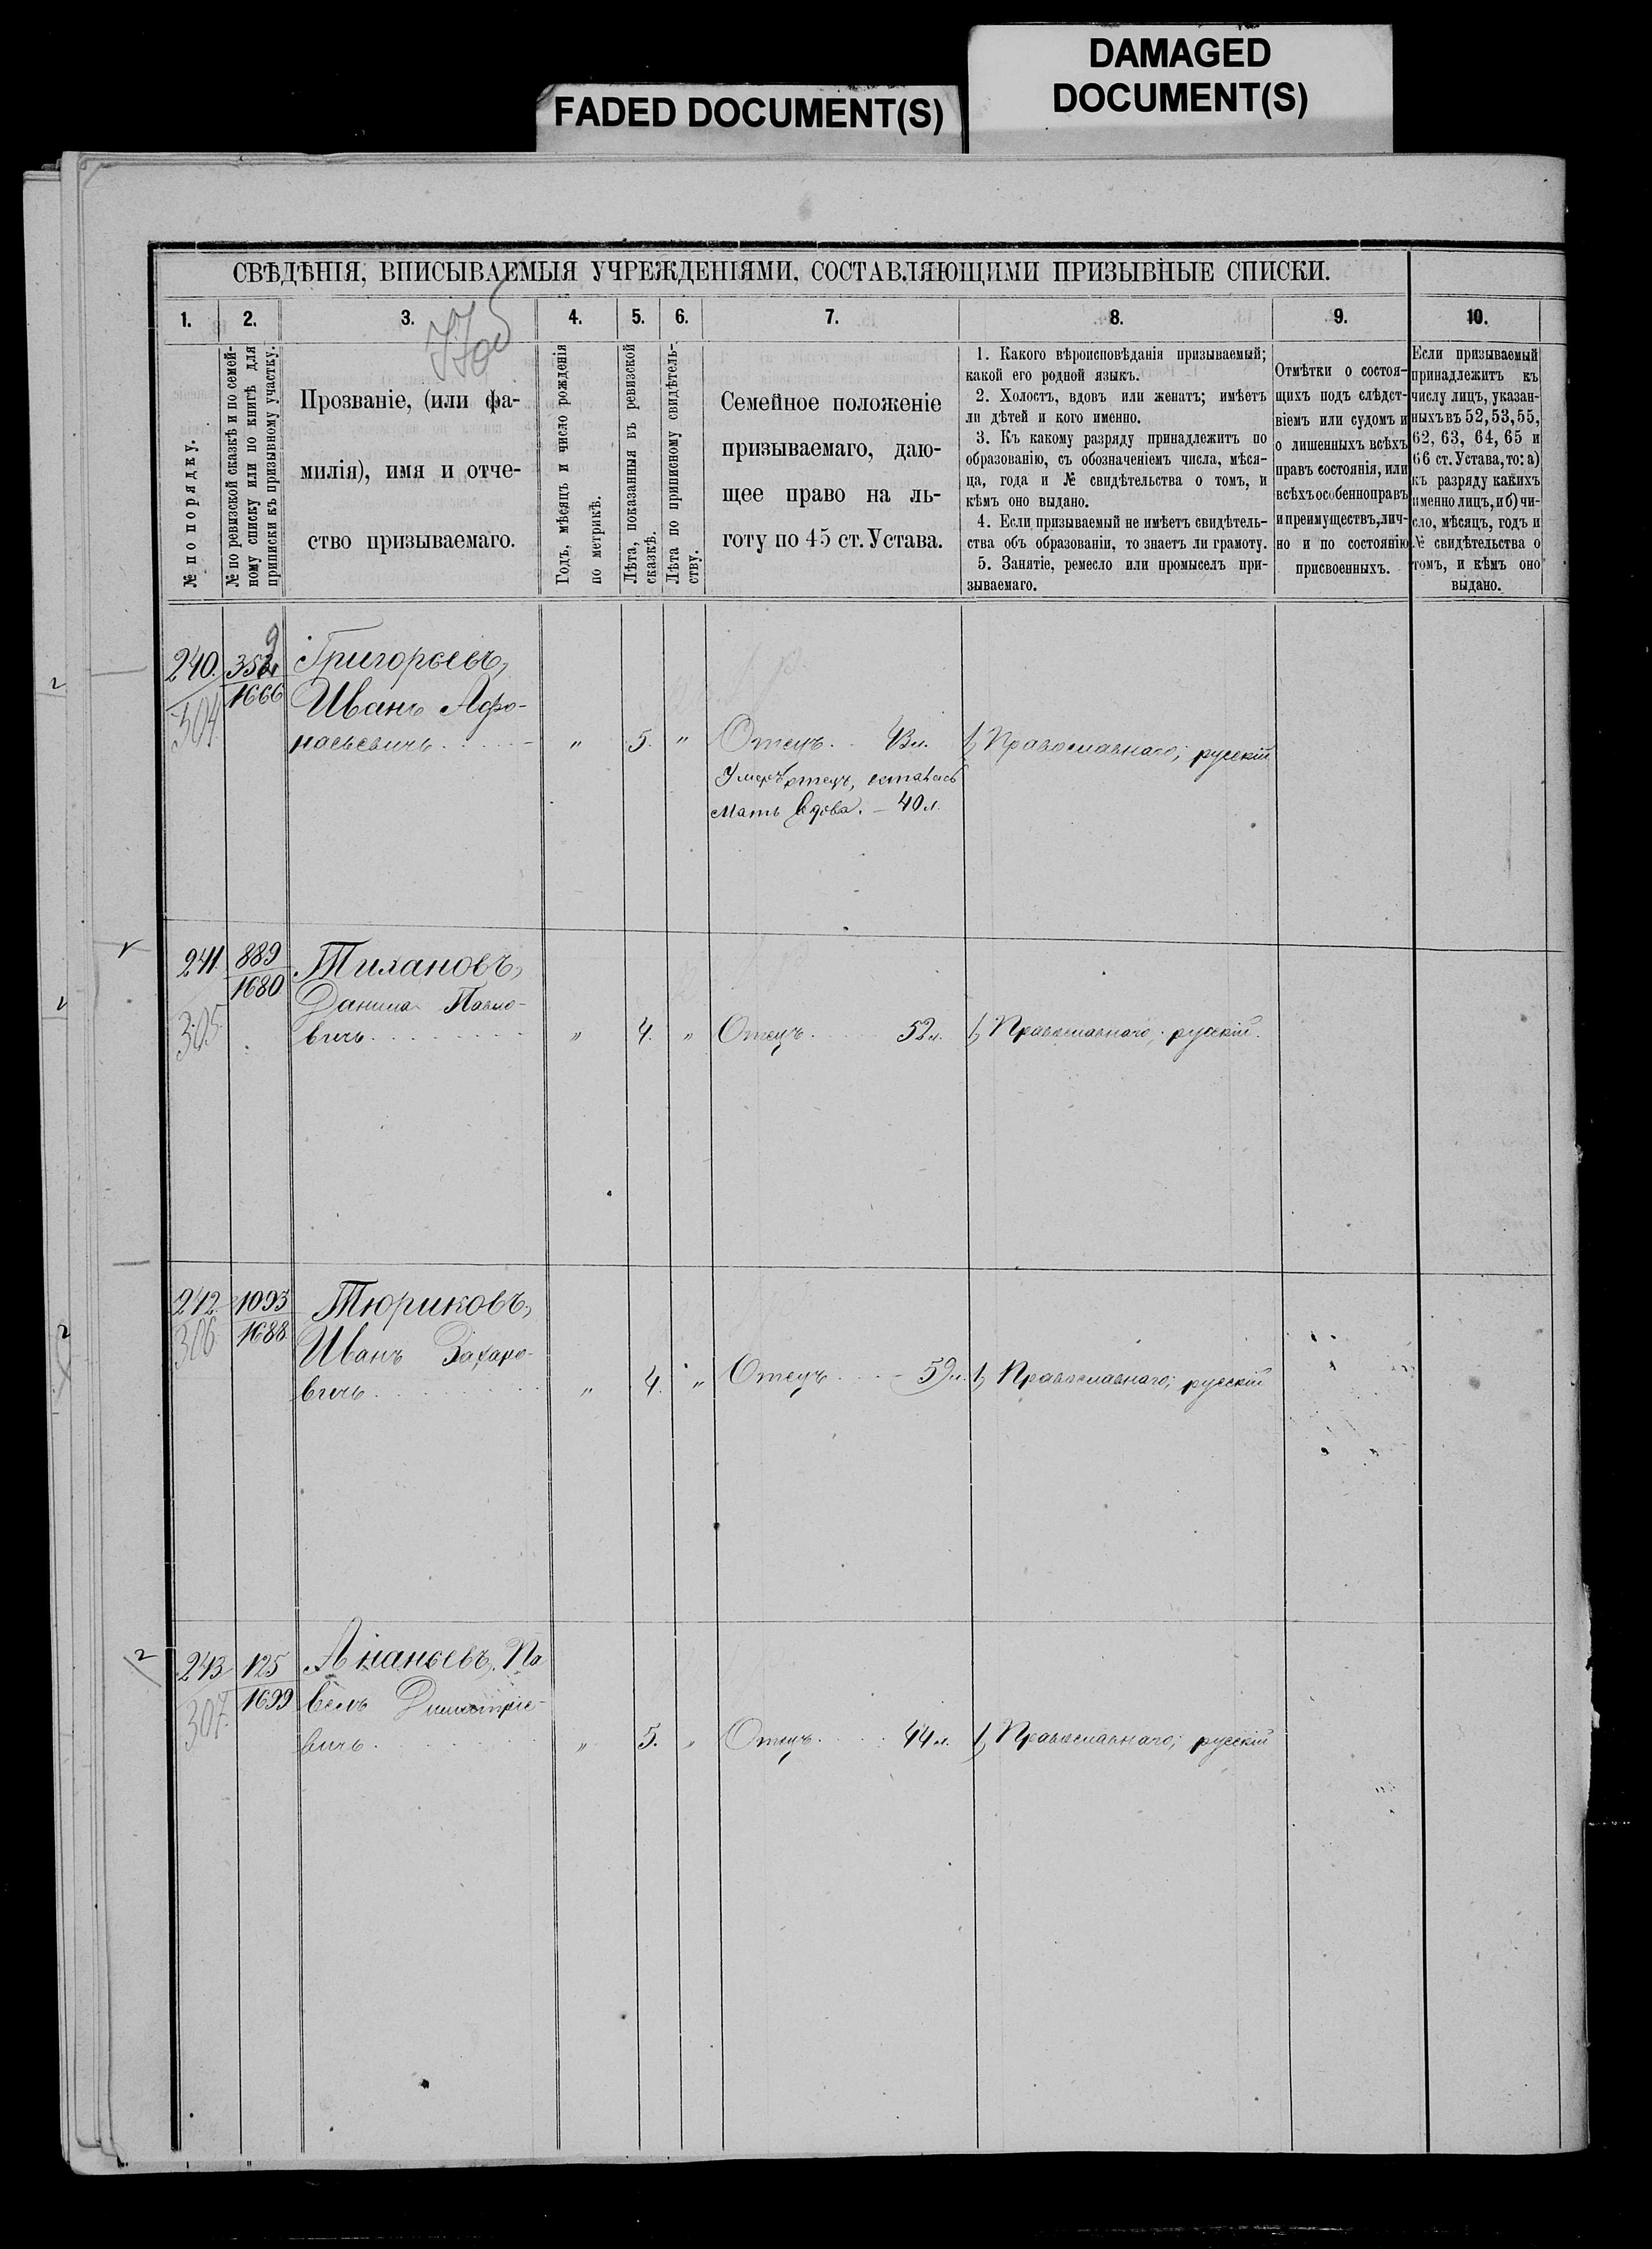 DAMAGED
DOCUMENT(S)
FADED DOCUMENT(S)
СВѢДѢНІЯ, ВПИСЫВАЕМЫЯ УЧРЕЖДЕНІЯМИ, СОСТАВЛЯЮЩИМИ ПРИЗЫВНЫЕ СПИСКИ.
1. 2. 3. 4. 5. 6. 7. 8. 9. 10.
№ по порядку.
№ по ревизской сказкѣ и по семей-
ному списку или по книгѣ для
приписки къ призывному участку.
Прозваніе, (или фа-
милія), имя и отче-
ство призываемаго.
Годъ, мѣсяцъ и число рожденія
по метрикѣ.
Лѣта, показанныя въ ревизской
сказкѣ.
Лѣта по приписному свидѣтель-
ству.
Семейное положеніе
призываемаго, даю-
щее право на ль-
готу по 45 ст. Устава.
1. Какого вѣроисповѣданія призываемый;
какой его родной языкъ.
2. Холостъ, вдовъ или женатъ; имѣетъ
ли дѣтей и кого именно.
3. Къ какому разряду принадлежитъ по
образованію, съ обозначеніемъ числа, мѣся-
ца, года и № свидѣтельства о томъ, и
кѣмъ оно выдано.
4. Если призываемый не имѣетъ свидѣтель-
ства объ образованіи, то знаетъ ли грамоту.
5. Занятіе, ремесло или промыселъ при-
зываемаго.
Отмѣтки о состоя-
щихъ подъ слѣдст-
віемъ или судомъ и
о лишенныхъ всѣхъ
правъ состоянія, или
всѣхъ особенно правъ
и преимуществъ, лич-
но и по состоянію
присвоенныхъ.
Если призываемый
принадлежитъ къ
числу лицъ, указан-
ныхъ въ 52, 53, 55,
62, 63, 64, 65 и
66 ст. Устава, то: а)
къ разряду какихъ
именно лицъ, и б) чи-
сло, мѣсяцъ, годъ и
№ свидѣтельства о
томъ, и кѣмъ оно
выдано.
240. Григорьевъ,
304 1666 Иванъ Афо-
насьевичъ " 5. " Отецъ 1, Православнаго; русскій
Умеръ отецъ, осталась
Мать вдова. – 40 л.
241. 889 Тихановъ,
305 1680 Данила Павло-
вичъ " 4. " Отецъ 52 л. 1, Православнаго; русскій.
242. 1093 Тюриковъ,
306 1688 Иванъ Захаро-
вичъ " 4. " Отецъ – 59 л. 1, Православнаго; русскій
243 125 Ананьевъ, Па
307. 1699 велъ Димитріе-
вичъ " 5. " Отецъ 44 л. 1, Православнаго; русскій